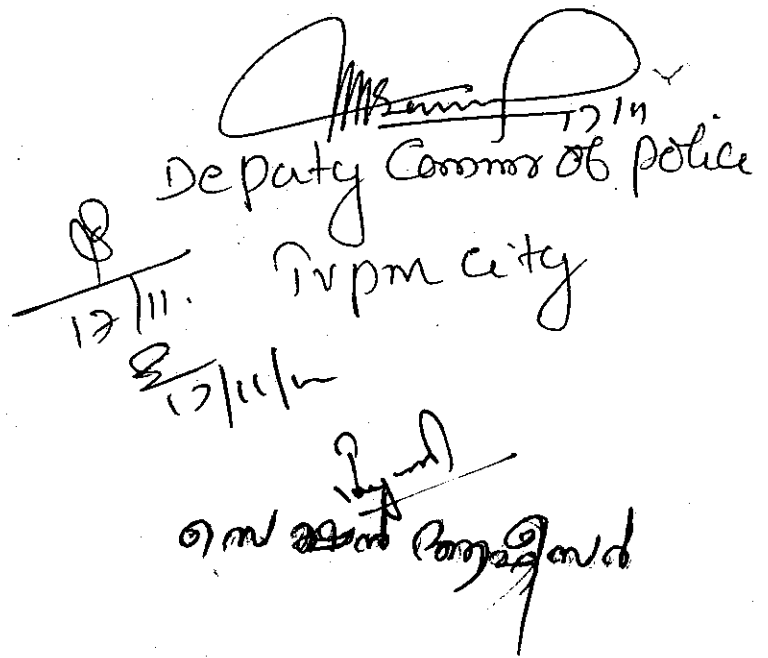 17/11
Deputy Commr of police
Tvpm city
17/11.
17/11/
സെക്ഷൻ ആഫീസർ